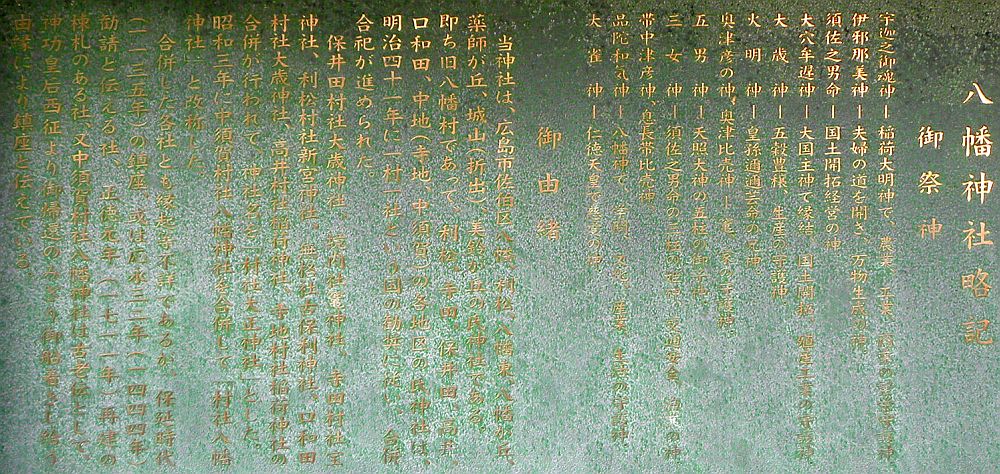 八幡神社略記
御祭神
宇迦之御魂神―稲荷大明神で、農業、工業、
伊邪那美神―夫婦の道を開き、万物生成の神。
須佐之男命―国土開拓経営の神
大穴牟遅神―大国主神で縁結、国土開拓、殖産工業の守護神
大歳神―五穀豊穣、生産の守護神
火明神―皇孫邇邇芸命の兄神。
奥津彦の神、奥津比売神―竃、家の守護神
五男神―天照大神の五柱の御子神
三女神―須佐之男命の三柱の姫神、交通安全、漁業の神
帯中津彦神、息長帯比売神。
品陀和気神―八幡神で、学問、文化、産業、生活の守護神。
大雀神―仁徳天皇で慈愛の神。
御由緒
当神社は、広島市佐伯区八幡、利松、八幡東、八幡が丘、
薬師が丘、城山(折出)、美鈴が丘の氏神社である。
即ち旧八幡村であって、利松、寺田、保井田、高井、
口和田、中地(寺地、中須賀)の各地区の氏神社は、
明治四十一年に一村一社という国の勧奨に従い、合併
合祀が進められた
保井田村社大歳神社、境内社竃神社、寺田村社三宝
神社、利松村社新宮神社、無格社古保利神社、口和田
村社大歳神社、高井村社稲荷神社、寺地村社稲荷神社の
合併が行われて、神社名を「村社大正神社」とした。
昭和三年に中須賀村社八幡神社を合併して「村社八幡
神社」と改称した
合併した各社とも縁起等不詳であるが、保延時代
(一一三五年)の鎮座、或は応永三三年(一四四四年)
勧請と伝える社、正徳元年(一七一一年)再建の
棟札のある社、又中須賀村社八幡神社は古老伝として、
神功皇后西征より御帰還のみぎり御船着きし給う
由縁により鎮座と伝えている。